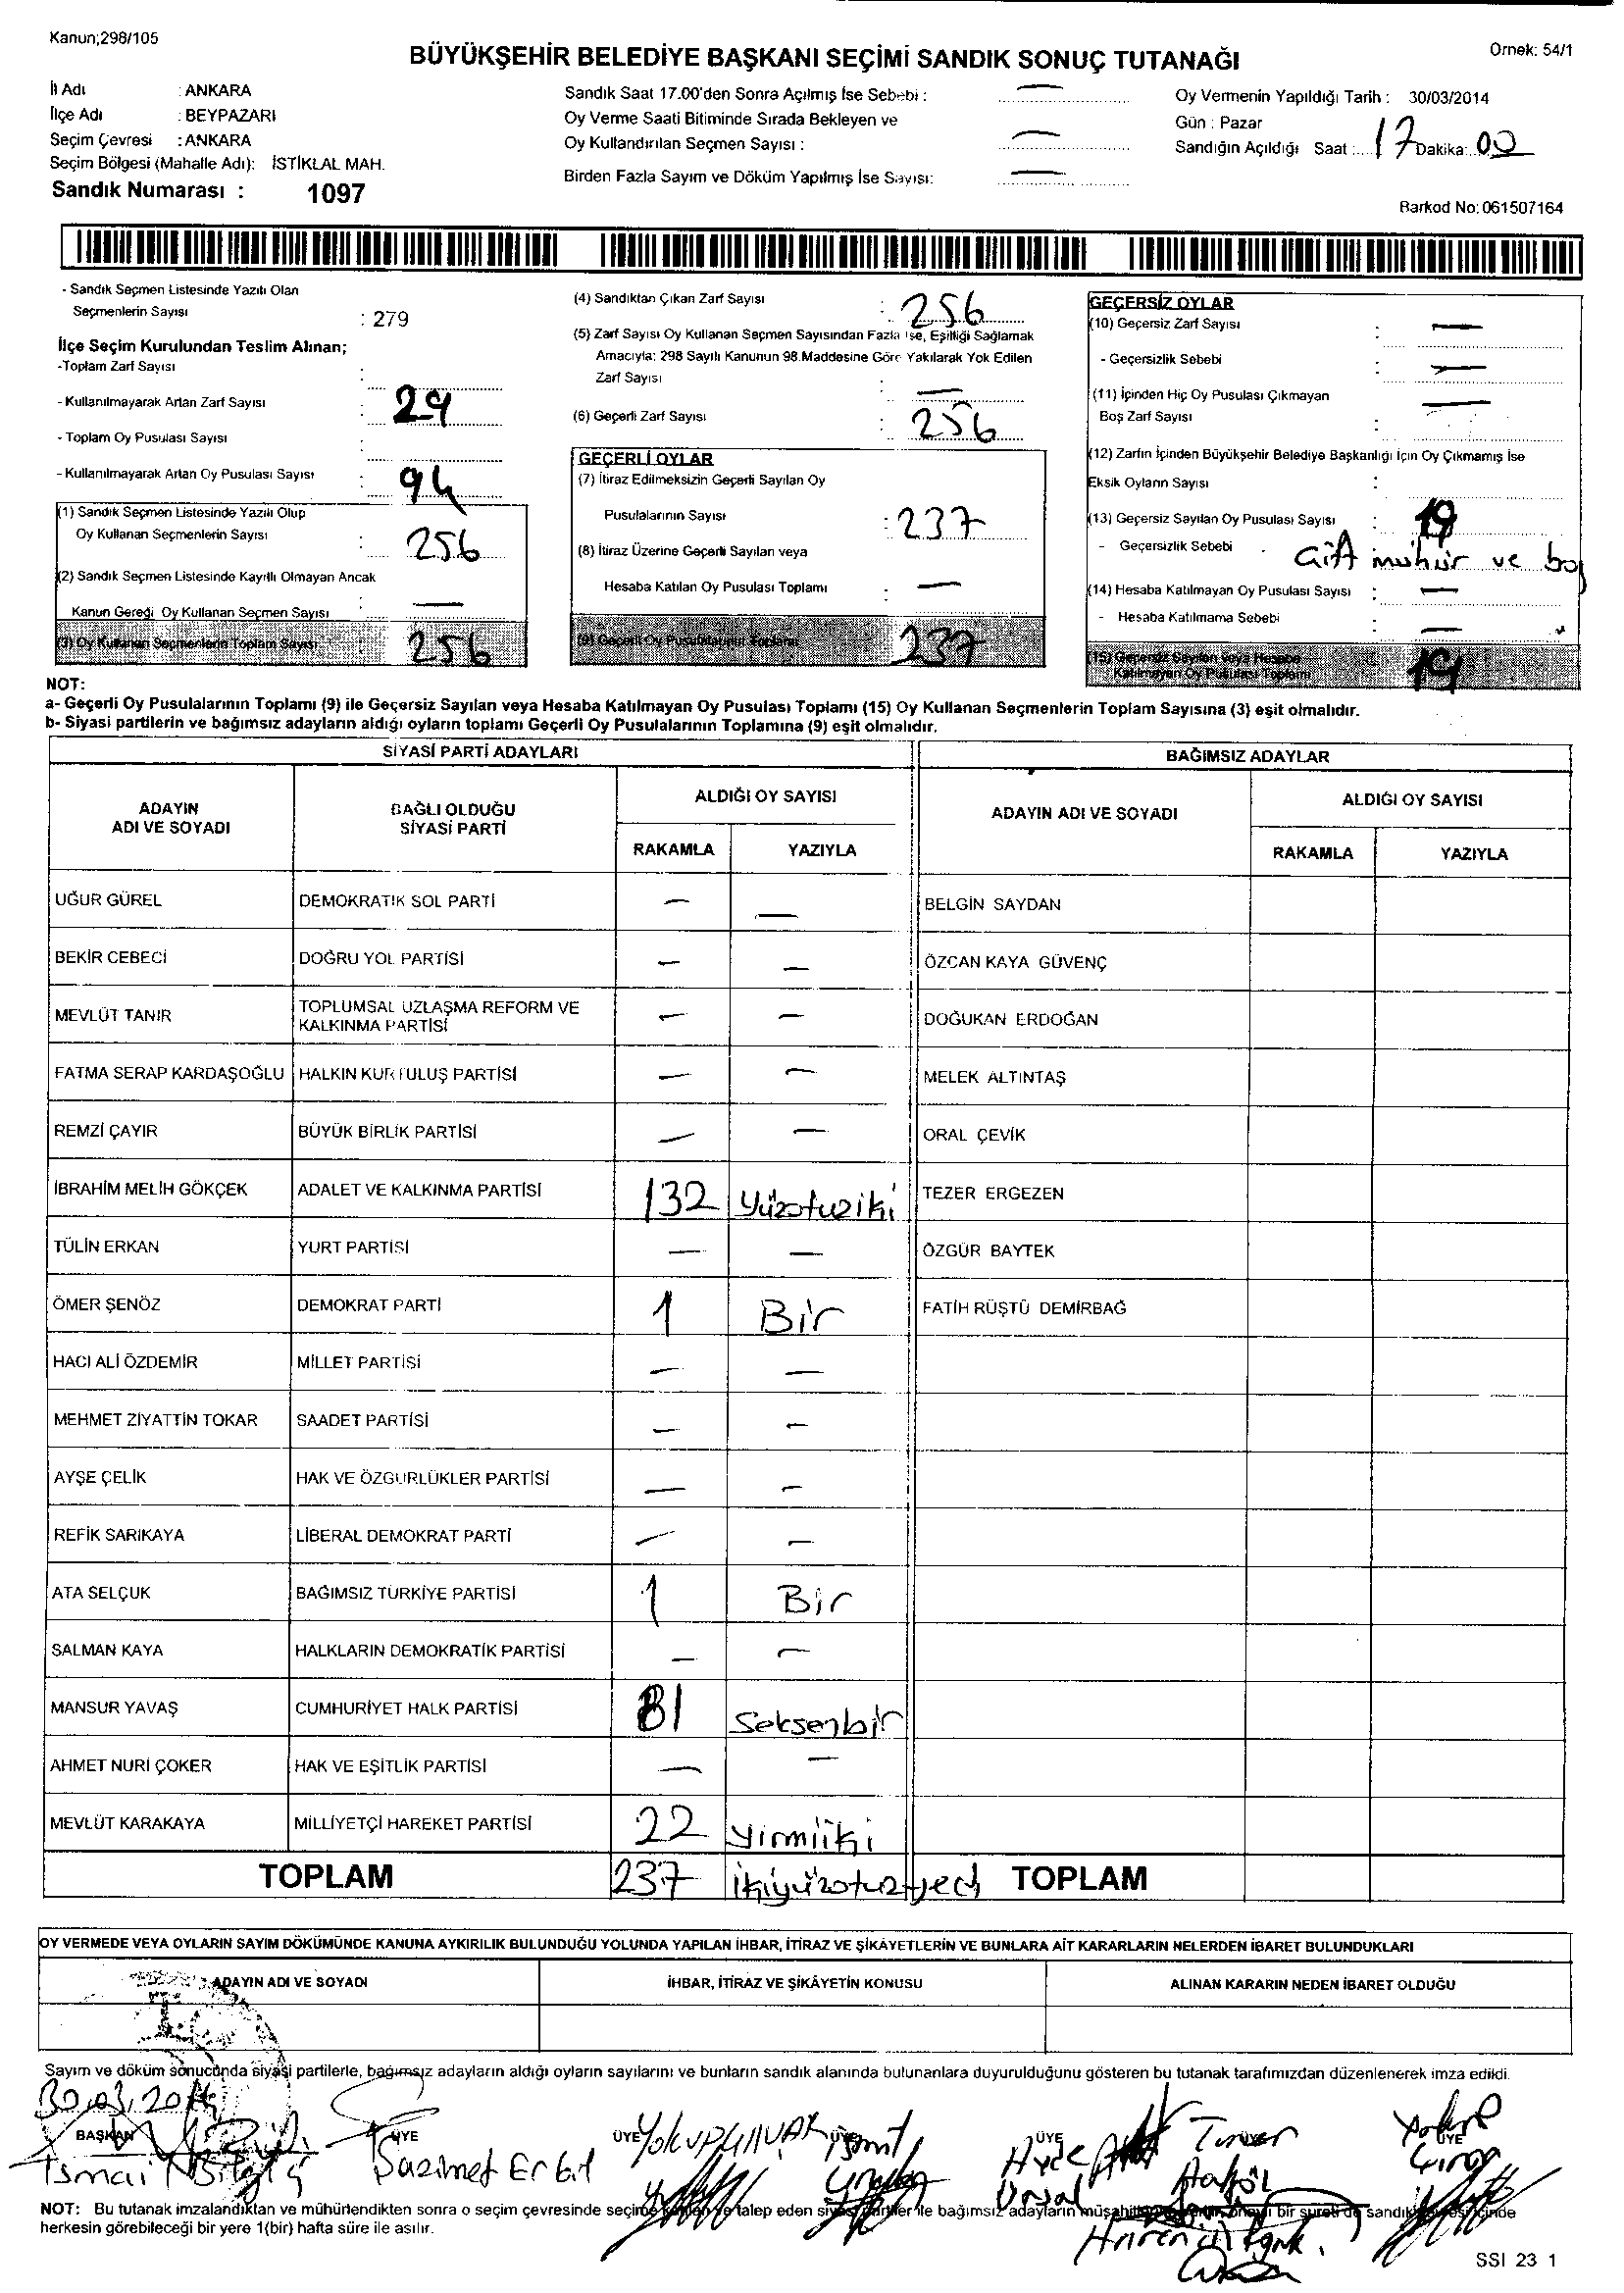 Kanun;298/105
BÜYÜKŞEHİR BELEDİYE BAŞKANI SEÇİMİ SANDIK SONUÇ TUTANAĞI
Örnek: 54/1
İl Adı : ANKARA
İlçe Adı : BEYPAZARI
Seçim Çevresi : ANKARA
Seçim Bölgesi (Mahalle Adı): İSTİKLAL MAH.
Sandık Numarası : 1097
Sandık Saat 17.00'den Sonra Açılmış İse Sebebi : —
Oy Verme Saati Bitiminde Sırada Bekleyen ve
Oy Kullandırılan Seçmen Sayısı : —
Birden Fazla Sayım ve Döküm Yapılmış İse Sayısı: —
Oy Vermenin Yapıldığı Tarih : 30/03/2014
Gün : Pazar
Sandığın Açıldığı Saat : 17 Dakika: 00
Barkod No: 061507164
- Sandık Seçmen Listesinde Yazılı Olan
Seçmenlerin Sayısı : 279
İlçe Seçim Kurulundan Teslim Alınan;
-Toplam Zarf Sayısı :
- Kullanılmayarak Artan Zarf Sayısı : 29
- Toplam Oy Pusulası Sayısı :
- Kullanılmayarak Artan Oy Pusulası Sayısı : 94
(1) Sandık Seçmen Listesinde Yazılı Olup
Oy Kullanan Seçmenlerin Sayısı : 256
(2) Sandık Seçmen Listesinde Kayıtlı Olmayan Ancak
Kanun Gereği Oy Kullanan Seçmen Sayısı : —
(3) Oy Kullanan Seçmenlerin Toplam Sayısı 256
(4) Sandıktan Çıkan Zarf Sayısı : 256
(5) Zarf Sayısı Oy Kullanan Seçmen Sayısından Fazla İse, Eşitliği Sağlamak
Amacıyla; 298 Sayılı Kanunun 98.Maddesine Göre Yakılarak Yok Edilen
Zarf Sayısı : —
(6) Geçerli Zarf Sayısı : 256
GEÇERLİ OYLAR
(7) İtiraz Edilmeksizin Geçerli Sayılan Oy
Pusulalarının Sayısı : 237
(8) İtiraz Üzerine Geçerli Sayılan veya
Hesaba Katılan Oy Pusulası Toplamı : —
(9) Geçerli Oy Pusulalarının Toplamı 237
GEÇERSİZ OYLAR
(10) Geçersiz Zarf Sayısı : —
- Geçersizlik Sebebi : —
(11) İçinden Hiç Oy Pusulası Çıkmayan —
Boş Zarf Sayısı :
(12) Zarfın İçinden Büyükşehir Belediye Başkanlığı İçin Oy Çıkmamış İse
Eksik Oyların Sayısı :
(13) Geçersiz Sayılan Oy Pusulası Sayısı : 19
- Geçersizlik Sebebi . Çift mühür ve boş
(14) Hesaba Katılmayan Oy Pusulası Sayısı : —
- Hesaba Katılmama Sebebi : —
(15) Geçersiz Sayılan veya Hesaba
Katılmayan Oy Pusulası Toplamı 19
NOT:
a- Geçerli Oy Pusulalarının Toplamı (9) ile Geçersiz Sayılan veya Hesaba Katılmayan Oy Pusulası Toplamı (15) Oy Kullanan Seçmenlerin Toplam Sayısına (3) eşit olmalıdır.
b- Siyasi partilerin ve bağımsız adayların aldığı oyların toplamı Geçerli Oy Pusulalarının Toplamına (9) eşit olmalıdır.
SİYASİ PARTİ ADAYLARI BAĞIMSIZ ADAYLAR
ADAYIN ADI VE SOYADI BAĞLI OLDUĞU SİYASİ PARTİ ALDIĞI OY SAYISI ADAYIN ADI VE SOYADI ALDIĞI OY SAYISI
RAKAMLA YAZIYLA RAKAMLA YAZIYLA
UĞUR GÜREL DEMOKRATİK SOL PARTİ — — BELGİN SAYDAN
BEKİR CEBECİ DOĞRU YOL PARTİSİ — — ÖZCAN KAYA GÜVENÇ
MEVLÜT TANIR TOPLUMSAL UZLAŞMA REFORM VE KALKINMA PARTİSİ — — DOĞUKAN ERDOĞAN
FATMA SERAP KARDAŞOĞLU HALKIN KURTULUŞ PARTİSİ — — MELEK ALTINTAŞ
REMZİ ÇAYIR BÜYÜK BİRLİK PARTİSİ — — ORAL ÇEVİK
İBRAHİM MELİH GÖKÇEK ADALET VE KALKINMA PARTİSİ 132 Yüzotuziki TEZER ERGEZEN
TÜLİN ERKAN YURT PARTİSİ — — ÖZGÜR BAYTEK
ÖMER ŞENÖZ DEMOKRAT PARTİ 1 Bir FATİH RÜŞTÜ DEMİRBAĞ
HACI ALİ ÖZDEMİR MİLLET PARTİSİ — —
MEHMET ZİYATTİN TOKAR SAADET PARTİSİ — —
AYŞE ÇELİK HAK VE ÖZGÜRLÜKLER PARTİSİ — —
REFİK SARIKAYA LİBERAL DEMOKRAT PARTİ — —
ATA SELÇUK BAĞIMSIZ TÜRKİYE PARTİSİ 1 Bir
SALMAN KAYA HALKLARIN DEMOKRATİK PARTİSİ — —
MANSUR YAVAŞ CUMHURİYET HALK PARTİSİ 81 Seksenbir
AHMET NURİ ÇOKER HAK VE EŞİTLİK PARTİSİ — —
MEVLÜT KARAKAYA MİLLİYETÇİ HAREKET PARTİSİ 22 Yirmiiki
TOPLAM 237 ikiyüzotuzyedi TOPLAM
OY VERMEDE VEYA OYLARIN SAYIM DÖKÜMÜNDE KANUNA AYKIRILIK BULUNDUĞU YOLUNDA YAPILAN İHBAR, İTİRAZ VE ŞİKÂYETLERİN VE BUNLARA AİT KARARLARIN NELERDEN İBARET BULUNDUKLARI
ADAYIN ADI VE SOYADI İHBAR, İTİRAZ VE ŞİKÂYETİN KONUSU ALINAN KARARIN NEDEN İBARET OLDUĞU
Sayım ve döküm sonucunda siyasi partilerle, bağımsız adayların aldığı oyların sayılarını ve bunların sandık alanında bulunanlara duyurulduğunu gösteren bu tutanak tarafımızdan düzenlenerek imza edildi.
30.03.2014
BAŞKAN ÜYE ÜYE ÜYE ÜYE ÜYE
İsmail Erbil
NOT: Bu tutanak imzalandıktan ve mühürlendikten sonra o seçim çevresinde seçime talep eden siyasi partiler ile bağımsız adayların bir sureti de sandık içinde
herkesin görebileceği bir yere 1(bir) hafta süre ile asılır.
SSI 23 1